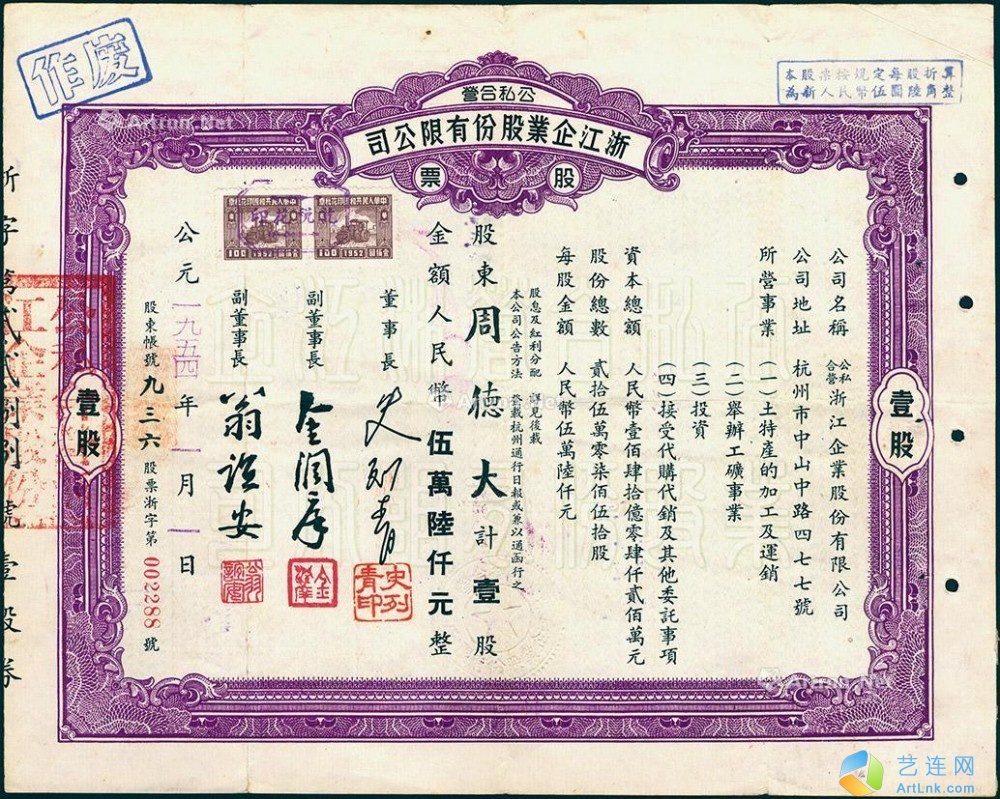 作廢
本股票按規定每股折算
為新人民幣伍圓陸角整
公私合營
浙江企業股份有限公司
股票
公司名稱 公私合營浙江企業股份有限公司
公司地址 杭州市中山中路四七七號
所營事業 (一)土特產的加工及運銷
(二)舉辦工礦事業
(三)投資
(四)接受代購代銷及其他委託事項
資本總額 人民幣壹佰肆拾億零肆仟貳佰萬元
股份總數 貳拾伍萬零柒佰伍拾股
每股金額 人民幣伍萬陸仟元
股息及紅利分配 詳見後載
本公司公告方法 登載杭州通行日報或兼以通函行之
股東周德大計壹股
金額人民幣伍萬陸仟元整
董事長 史列青
史列青印
副董事長 金潤庠
金潤庠
副董事長 翁誼安
公元一九五四年一月一日
股東帳號九三六股票浙字第002288號
中華人民共和國印花稅票
100 1952
中華人民共和國印花稅票
100 1952
壹股
壹股
浙字第貳貳捌捌號壹股券
Artlnk.Net
艺连网
ArtLnk.com